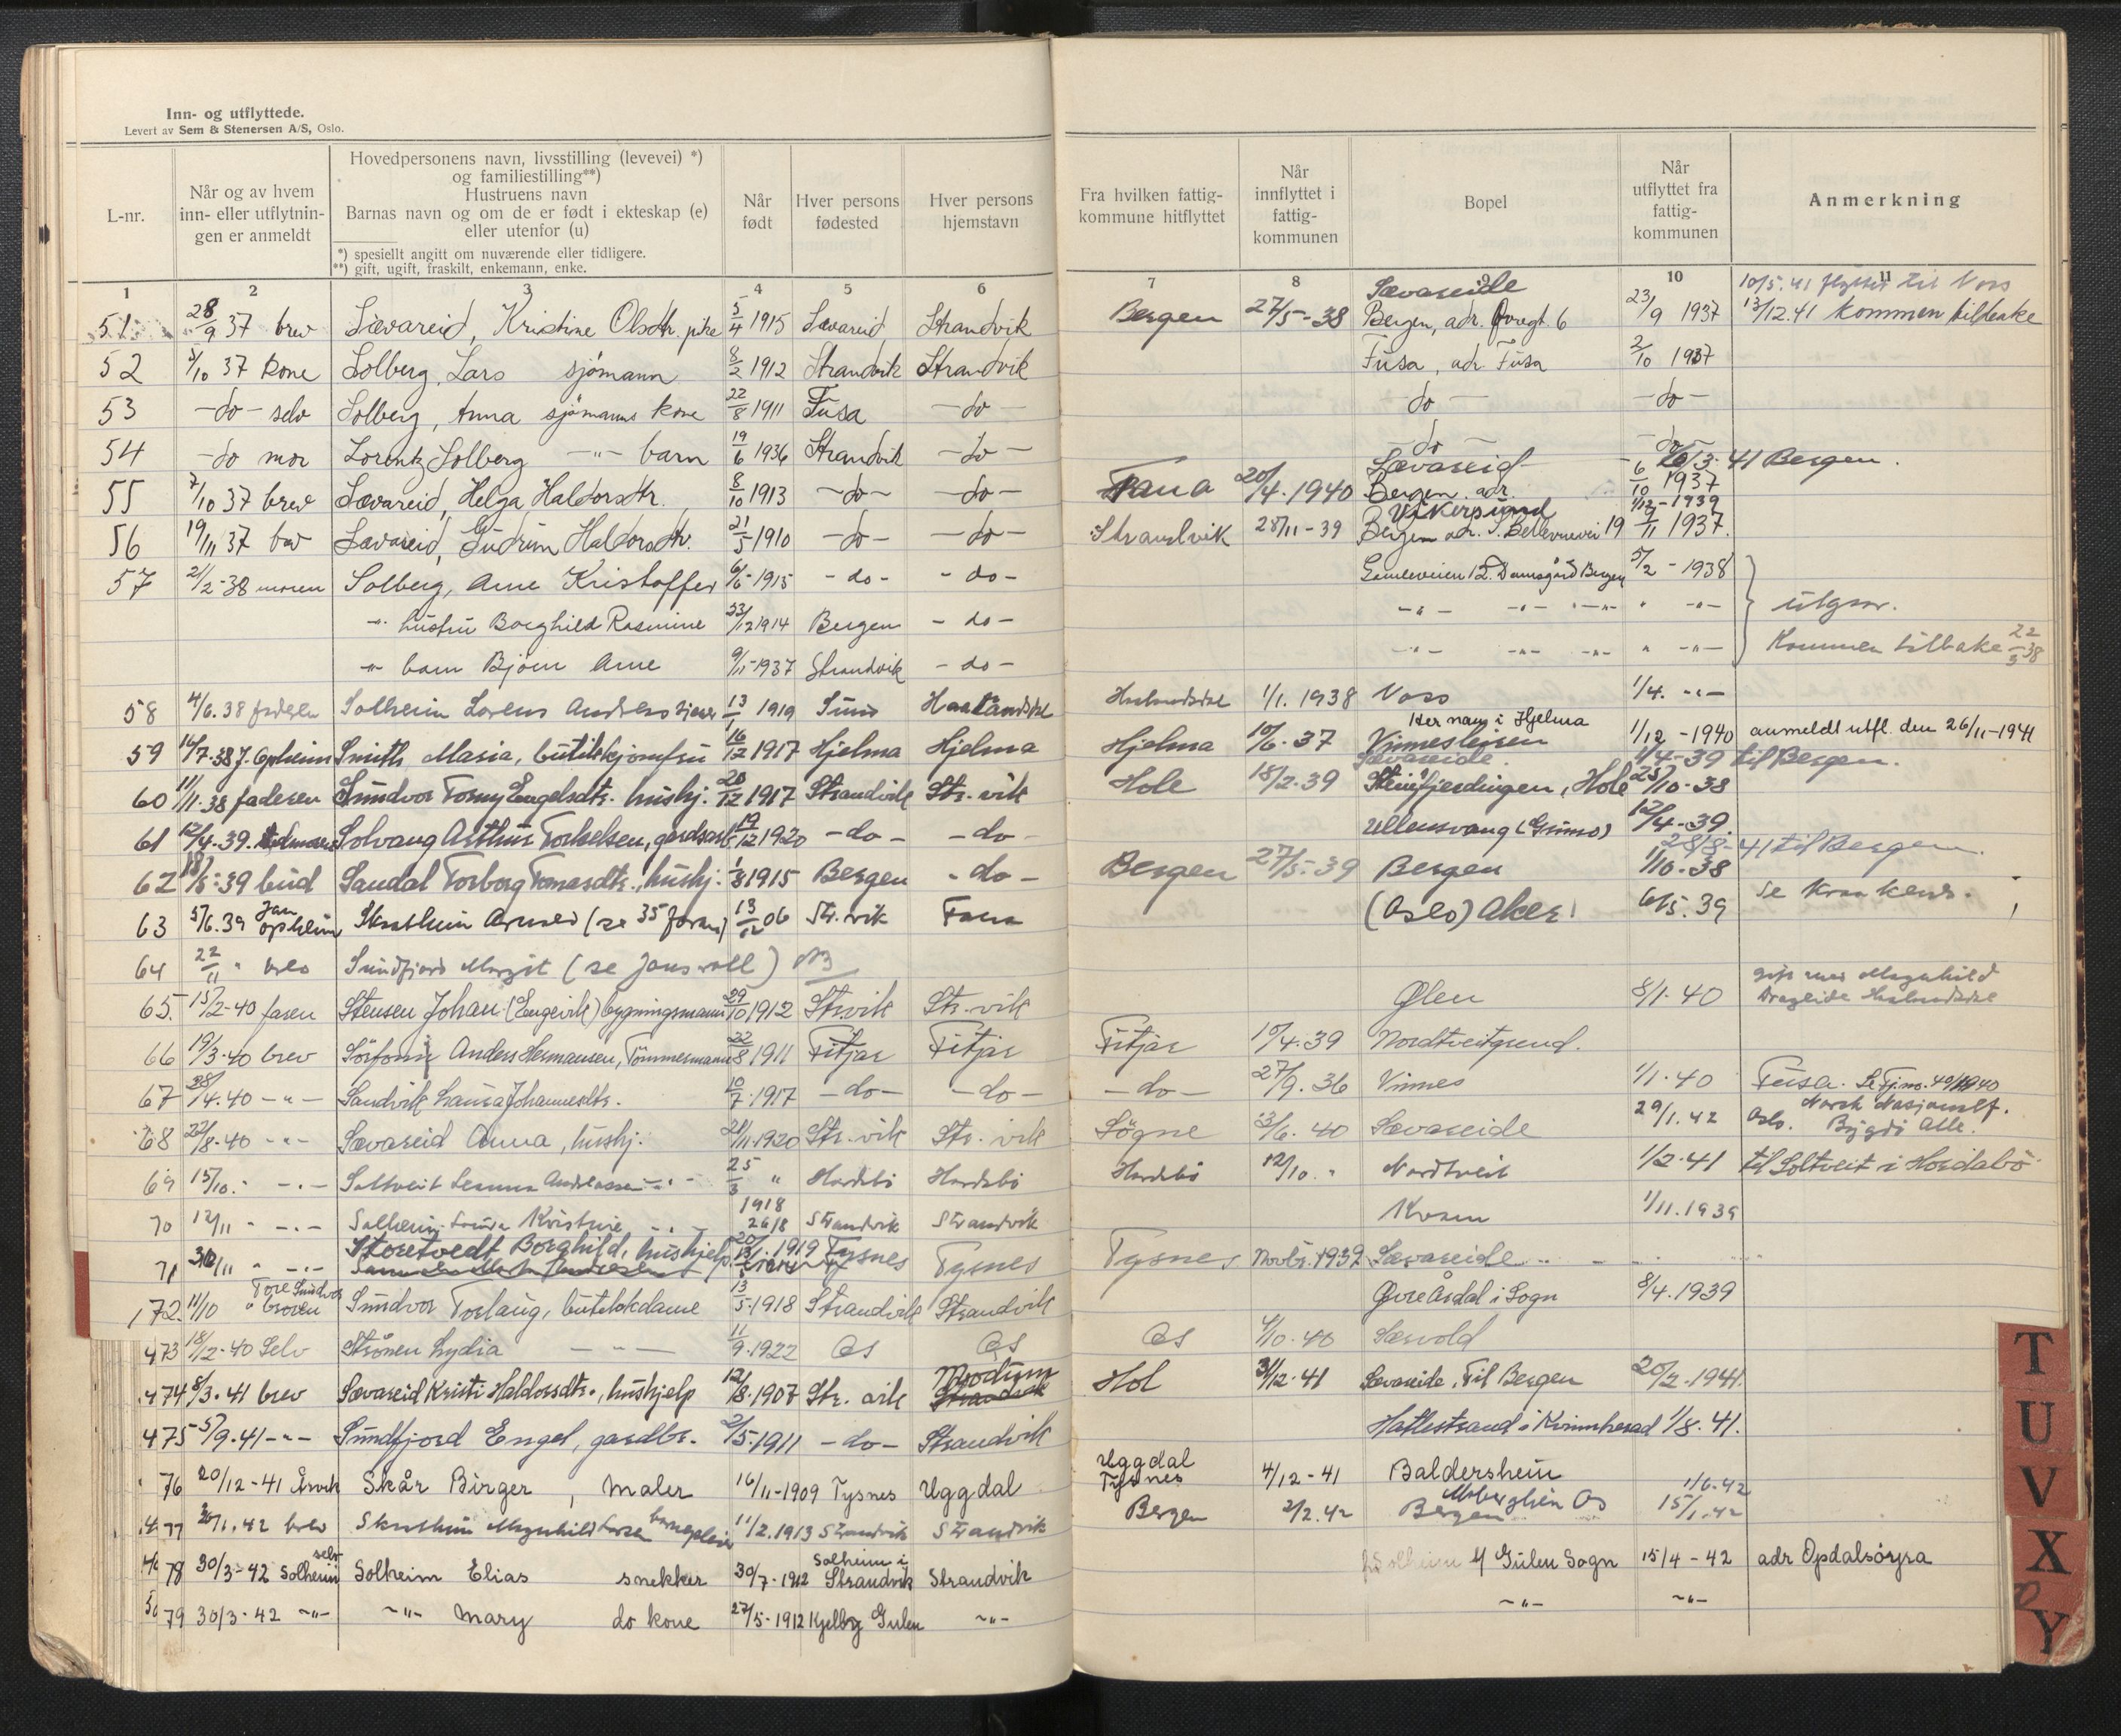 Inn- og utflyttede.
Levert av Sem & Stenersen A/S, Oslo.
L-nr.
Når og av hvem inn- eller utflytnin-gen er anmeldt
Hovedpersonens navn, livsstilling (levevei) *)
og familiestilling**)
Hustruens navn
Barnas navn og om de er født i ekteskap (e)
eller utenfor (u)
*) spesiellt angitt om nuværende eller tidligere.
**) gift, ugift, fraskilt, enkemann, enke.
Når født
Hver persons fødested
Hver persons hjemstavn
Fra hvilken fattig-kommune hitflyttet
Når innflyttet i fattig-kommunen
Bopel
Når utflyttet fra fattig-kommunen
Anmerkning
1 2 3 4 5 6 7 8 9 10 11
Sævareide 10/5.41 flyttet til Voss
51 28/9 37 brev Sævareid, Kristine Olsdtr. pike 5/4 1915 Sævareid Strandvik Bergen 27/5-38 Bergen, adr. 6 23/9 1937 13/12.41 kommen tilbake
52 2/10 37 kone Solberg, Lars sjömann 8/2 1912 Strandvik Strandvik Fusa, adr. Fusa 2/10 1937
53 -do- selv Solberg, Anna sjömanns kone 22/8 1911 Fusa -do- do -do-
54 -do mor Lorentz Solberg -"- barn 19/6 1936 Strandvik -do- do -do-
Sævareid 10/3-41 Bergen.
55 7/10 37 brev Sævareid, Helga Haldorsdtr. 8/10 1913 -do- -do- Fana 20/4.1940 Bergen adr. 6/10 1937
Vikersund 1/12-1939
56 19/11 37 brev Sævareid, Gudrun Haldorsdtr. 21/5 1910 -do- -do- Strandvik 28/11-39 Bergen adr. 19 9/11 1937.
57 21/2-38 moren Solberg, Arne Kristoffer 6/5-1915 -do- -do- Damsgård Bergen 5/2-1938
-"- hustru Borghild Rasmine 23/12 1914 Bergen -do- -"- -"- -"- " -"- utgår.
-"- barn Bjørn Arne 9/11-1937 Strandvik -do- -"- -"- -"- " -"- Kommen tilbake 22/3-38
58 4/6.38 faderen Solheim Lorens Andreas 13/1 1919 Sund Haalandsdal Haalandsdal 1/1.1938 Voss 1/4. -"-
Hernan i Hjelma
59 14/7.38 J. Opheim Smith Masia, butikkjomfru 16/12 1917 Hjelma Hjelma Hjelma 10/6.37 Vinnesleisen 1/12-1940 anmeldt utfl. den 26/11-1941
Sævareide. 1/4-39 til Bergen.
60 11/11.38 faderen Sundvor Tormy Engelsdtr. hushj. 20/12 1917 Strandvik Str.vik Hole 18/2.39 Steinsfjerdingen, Hole 25/10-38
61 12/4.39. Solvang Arthur Torkelsen, gardsarb 19/12 1920 -do- -do- Ullensvang (Grimo) 12/4-39.
28/8-41 til Bergen.
62 18/5.39 bud Sandal Torborg Tomasdtr., hushj. 1/8 1915 Bergen -do- Bergen 27/5-39 Bergen 1/10-38
63 5/6.39 Jan Opheim (se 35 foran) 13/12 06 Str.vik Fana (Oslo) Aker 6/5.39 se
64 22/11 " brev Sundfjord Margit (se Jansvoll)
65. 15/2-40 faren Stensen Johan (Engevik) bygningsmann 29/10 1912 Str.vik Str.vik Ølen 8/1.40 gift med Magnhild
66 19/3.40 brev Anders Hermansen, Tömmermann 22/8 1911 Fitjar Fitjar Fitjar 10/4.39 Nordtveitgrend.
67 28/4.40 -"- Sandvik Laura Johannesdtr. 10/7.1917 -do- -do- -do- 27/9.36 Vinnes 1/1.40 Fusa.
Norsk Nasjonalf.
68 22/8-40 -"- Sævareid Anna, hushj. 21/11.1920 Str.vik Str.vik Sögne 3/6.40 Sævareide 29/1.42 Oslo. Bygdö Alle.
69 15/10." -"- Soltveit -"- 25/3 " Hordabö Hordabö Hordabö 12/10. " Nordtveit 1/2.41 til Soltveit i Hordabö
70 12/11 " -"- Solheim Kristine -"- 1918 26/8 Strandvik Strandvik 1/11.1939
71 30/11 " -"- Storetvedt Borghild, hushjelp. 1919 Tysnes Tysnes Tysnes Novbr.1939 Sævareide
172. 11/10 " Tore Sundvor broren Sundvor Torlaug, butikkdame 13/5.1918 Strandvik Strandvik Øvre Årdal i Sogn 8/4.1939
473 18/12-40 Selv Strönen Lydia -"- 11/9.1922 Os Os Os 4/10.40 Sævold
Modum
474 8/3.41 brev Sævareid Kristi Haldorsdtr., hushjelp 12/8.1907 Str.vik Strandvik Hol 3/12.41 Sævareide, Til Bergen 20/2.1941.
475 5/9.41 -"- Sundfjord Engel, gardbr. 2/5.1911 -do- Strandvik Hatlestrand i Kvinnherad 1/8.41.
76 20/12-41 Skår Birger, maler 16/11-1909 Tysnes Uggdal Uggdal Tysnes 4/12-41 Baldersheim 1/6.42
77 20/1.42 brev Magnhild 11/2.1913 Strandvik Strandvik Bergen 2/2.42 Bergen Os 15/1.42
78 30/3-42 selv Solheim Solheim Elias snekker 30/7-1912 Solheim i Strandvik Strandvik Gulen Sogn 15/4-42 adr Opdalsöyra
79 30/3-42 -"- -"- Mary do kone 27/5-1912 Gulen -"- -"- -"-
T
U
V
X
Y